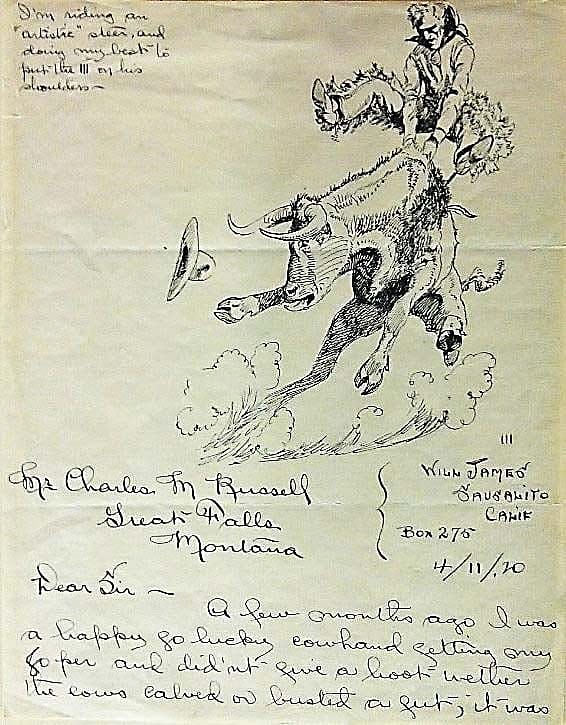 I'm riding an
"artistic" steer, and
doing my best to
put the III on his
shoulders —
III
Mr Charles M Russell
Great Falls
Montana
Will James
Sausalito
Calif
Box 275
4/11/20
Dear Sir —
A few months ago I was
a happy go lucky cowhand getting my
60 per and did'nt give a hoot wether
the cows calved or busted a gut; it was